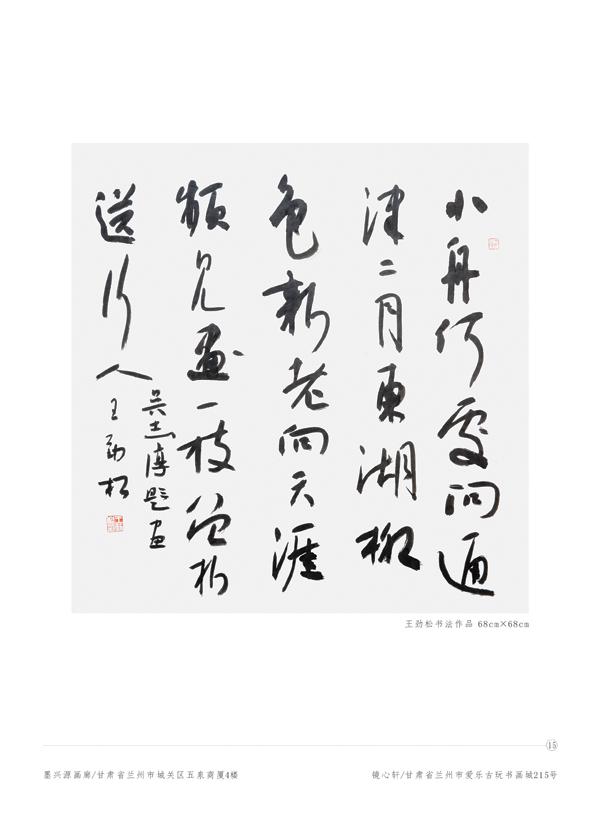 小舟何處问通
津二月東湖柳
色新老向天涯
頻见畫一枝曾折
送行人
吴志淳题畫
王劲松
王劲松书法作品 68cm×68cm
15
墨兴源画廊/甘肃省兰州市城关区五泉商厦4楼
镜心轩/甘肃省兰州市爱乐古玩书画城215号